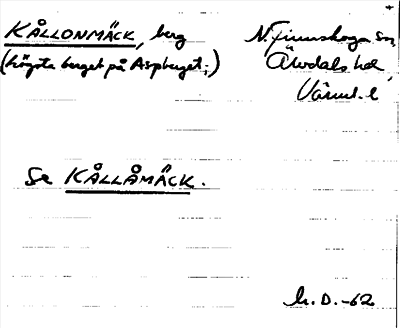 KÅLLONMÄCK, berg
(högsta berget på Aspberget;)
N. Finnskoga sn,
Älvdals hd,
Värml. l
Se KÅLLÅMÄCK.
L. D. -62